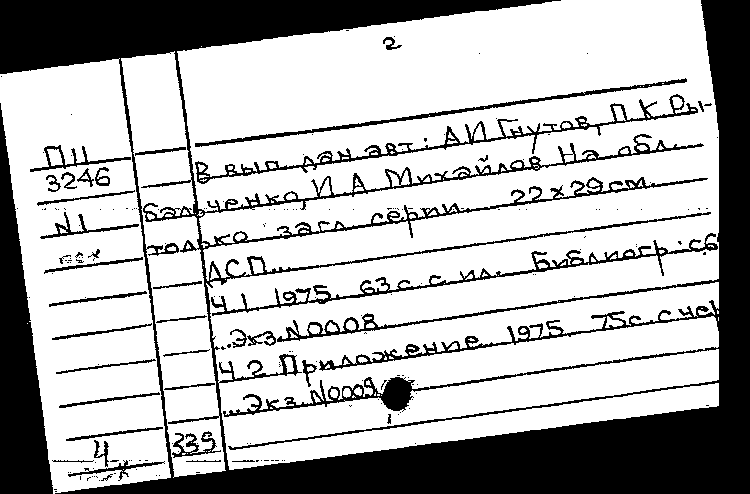 2
П11
3246
N1
В вып. дан авт: А И Гнутов, П. К. Ры-
бальченко, И А Михайлов На обл.
только загл серии. 22×29см.
ДСП...
Ч.1. 1975. 63с. с ил. Библиогр: с.6
...Экз.N0008.
Ч.2 Приложение. 1975. 75с. с чер
...Экз.N0009.
4
339